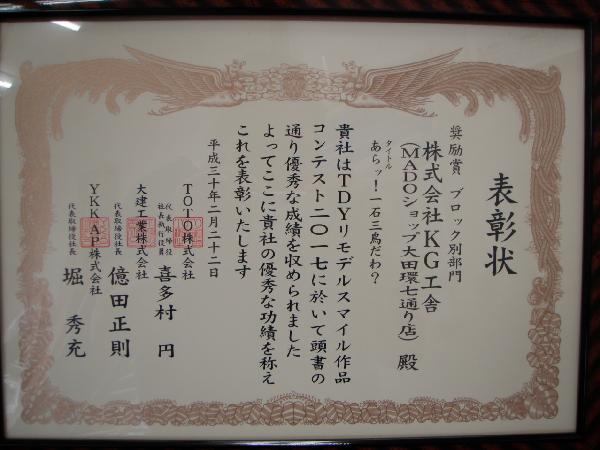 表彰状
奨励賞 ブロック別部門
株式会社KG工舎
(MADOショップ大田環七通り店) 殿
タイトル
あらッ!一石三鳥だわ?
貴社はTDYリモデルスマイル作品
コンテスト二〇一七に於いて頭書の
通り優秀な成績を収められました
よってここに貴社の優秀な功績を称え
これを表彰いたします
平成三十年二月二十二日
TOTO株式会社
代表取締役
社長執行役員
喜多村 円
大建工業株式会社
代表取締役社長
億田正則
YKK AP株式会社
代表取締役社長
堀 秀充